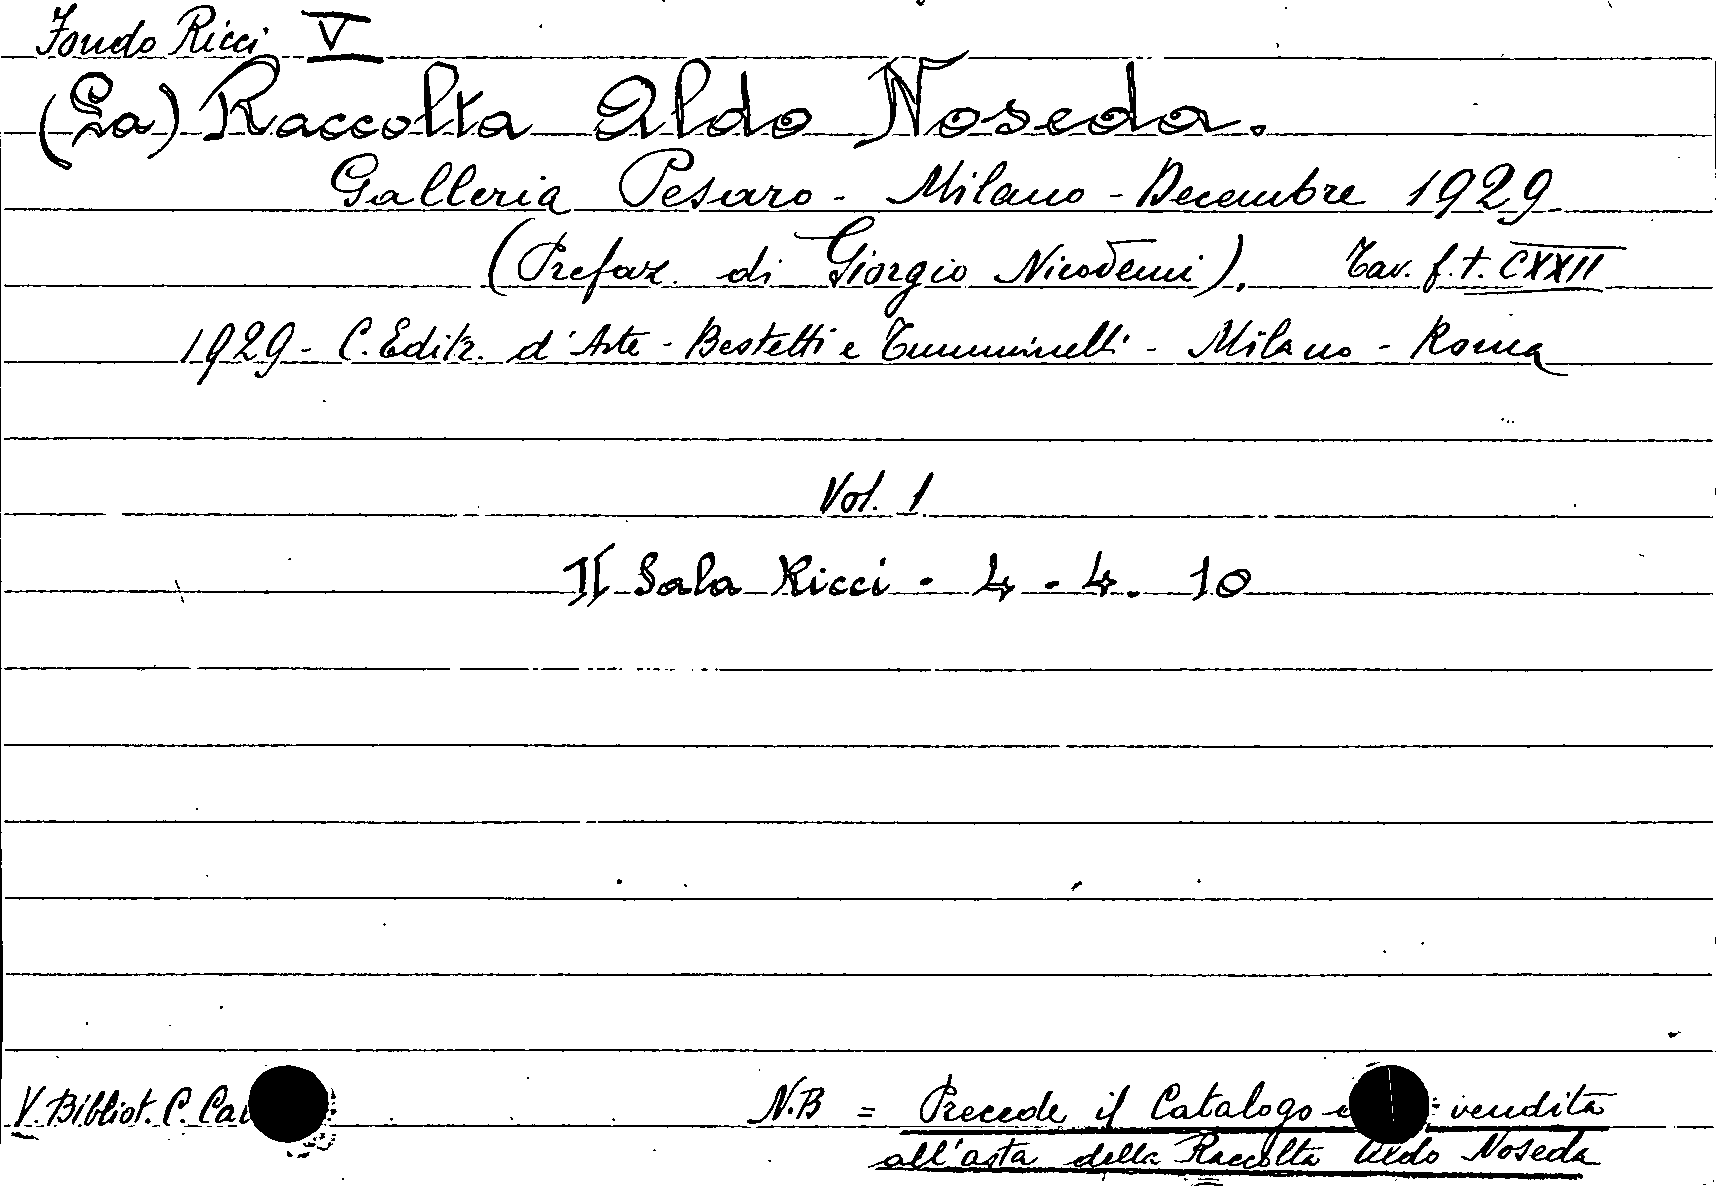 Fondo Ricci V
(La) Raccolta Aldo Noseda.
Galleria Pesaro - Milano - Decembre 1929
(Prefaz. di Giorgio Nicodemi). Tav. f.t. CXXII
1929 - C. Editr. d'Arte - Bestetti e Tumminelli - Milano - Roma
Vol. 1
II Sala Ricci - 4 - 4. 10
V. Bibliot. C.
N.B = Precede il Catalogo vendita
all'asta della Raccolta Aldo Noseda